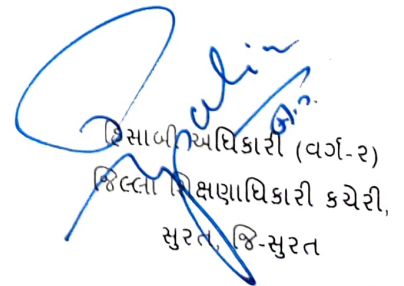 હિસાબી અધિકારી (વર્ગ-૨)
જિલ્લા શિક્ષણાધિકારી કચેરી,
સુરત, જિ-સુરત